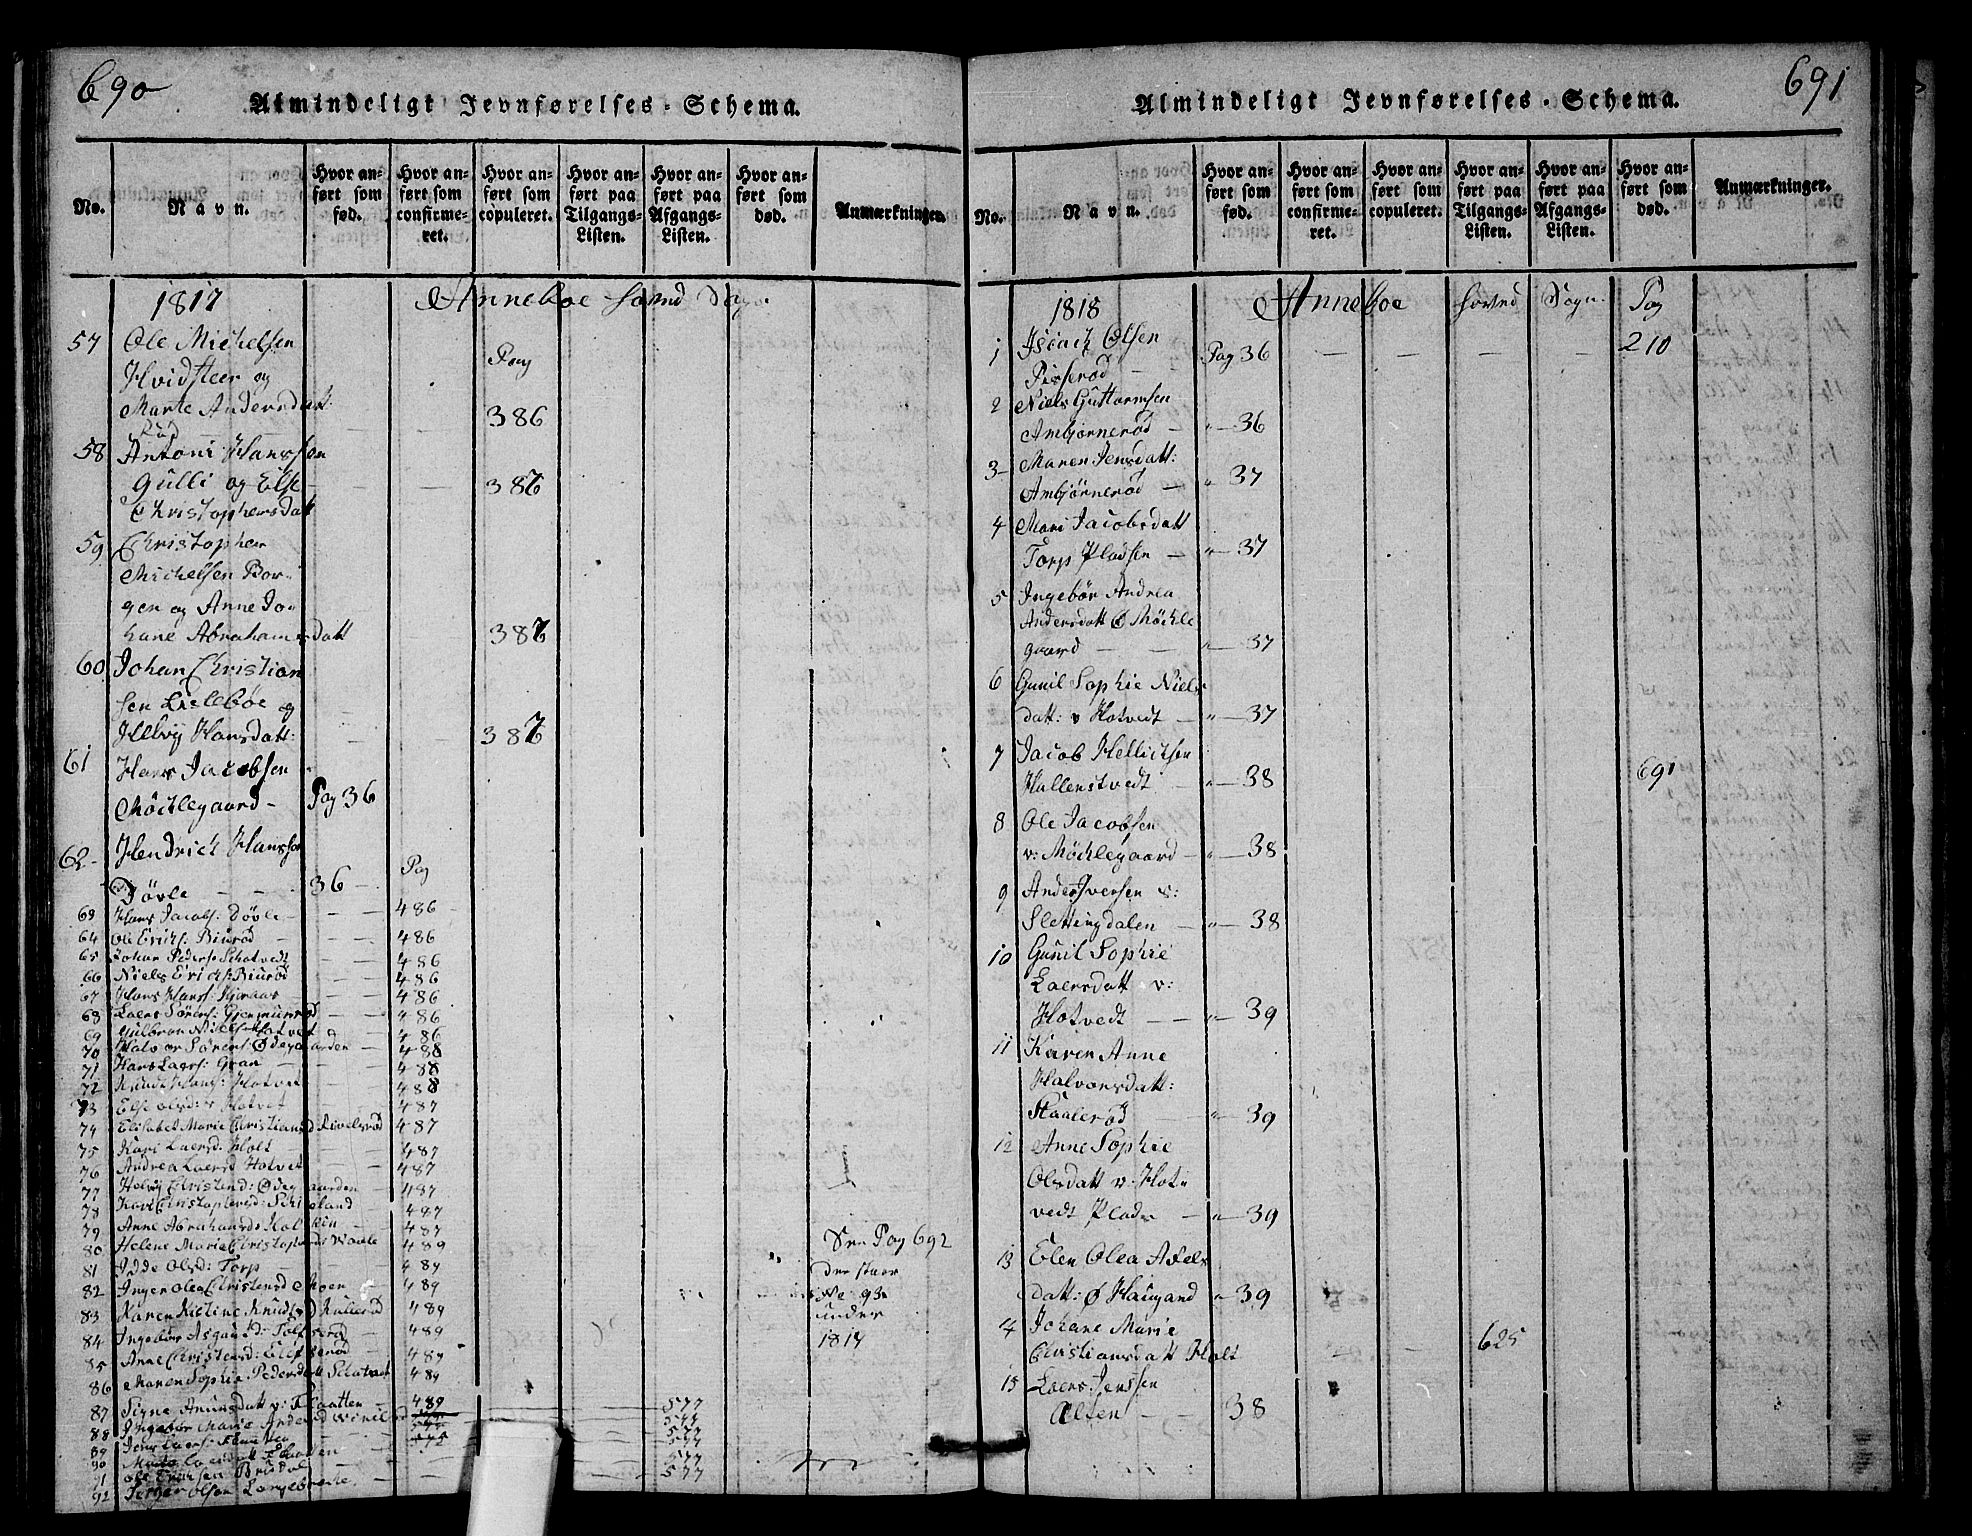 690
Almindeligt Jevnførelses-Schema.
No.
Navn.
Hvor anført som fød.
Hvor anført som confirmeret.
Hvor anført som copuleret.
Hvor anført paa Tilgangs-Listen.
Hvor anført paa Afgangs-Listen.
Hvor anført som død.
Anmærkninger.
1817 Anneboe hoved Sogn
57 Ole Michelsen
Hvidsteen og Pag
Marte Andersdatt: 386
Rød
58 Antoni Hanssen
Gulli og Else 387
Christophersdatt
59 Christopher
Michelsen Bor-
gen og Anne Jo-
hane Abrahamsdatt 387
60 Johan Christian
sen Lillebøe og
Helvig Hansdatt: 387
61 Hans Jacobsen
Møcklegaard - Pag 36
62 Hendrich Hanssen
Døvle 36 Pag
63 Hans Jacobs: Døvle 486
64 Ole Erichs: Biurød 486
65 Johan Peders: Schotvedt 486
66 Niels Erichs: Biurød 486
67 Hans Hans: 486
68 Laers Sørens: 486
69 Gulbran Niels: Hotvet 486
70 Halvor Sørens: Ødegaarden 488
71 Hans Laers: Gran 488
72 Knudt Hans: Hotvet 488
73 Else Olsd: Hotvet 487
74 Elisabet Marie Christiansd 487
75 Kari Laersd: Holt 487
76 Andrea Laersd Hotvet 487
77 Helvig Christensd: Ødegaarden 487
78 Kari Christophersd: 487
79 Anne Abrahamsd: 487
80 Helene Marie Christophersd 489
81 Idde Olsd: Torp 489
82 Inger Olea Christensd Moen 489
83 Karen Kistine Knudsd 489
84 Ingebør 489
85 Anne Christensd: 489
86 Maren Sophie Pedersdatt Schotvedt 489
87 Signe Amunsdatt v: Flaatten 489 577
88 Ingebør Marie Andersd 577
89 Jens Laers: 577
90 577
91 Ole 577
92 Olsen 577
See Pag 692
der staar
No 93
under
1817
691
Almindeligt Jevnførelses-Schema.
No.
Navn.
Hvor anført som fød.
Hvor anført som confirmeret.
Hvor anført som copuleret.
Hvor anført paa Tilgangs-Listen.
Hvor anført paa Afgangs-Listen.
Hvor anført som død.
Anmærkninger.
1818 Anneboe hoved Sogn Pag
1 Isaach Olsen Pag 36 210
Pisserød
2 Niels Guttormsen
Ambjørnerød 36
3 Maren Jensdatt:
Ambjørnerød 37
4 Mari Jacobsdatt
Torp Pladsen 37
5 Ingebør Andrea
Andersdatt Ø Møckle
gaard 37
6 Gunil Sophie Niels
datt: v Hotvedt 37
7 Jacob Hellichsen
Hallenstvedt 38 691
8 Ole Jacobsen
v: Møcklegaard 38
9 Anders Iversen v:
Slettingdalen 38
10 Gunil Sophie
Laersdatt v:
Hotvedt 39
11 Karen Anne
Halvorsdatt:
Staalerød 39
12 Anne Sophie
Olsdatt v: Hot-
vedt Plads 39
13 Elen Olea Axels
datt: Ø Haugand 39
14 Johane Marie
Christiansdatt Holt 625
15 Laers Jenssen
Alfen 38